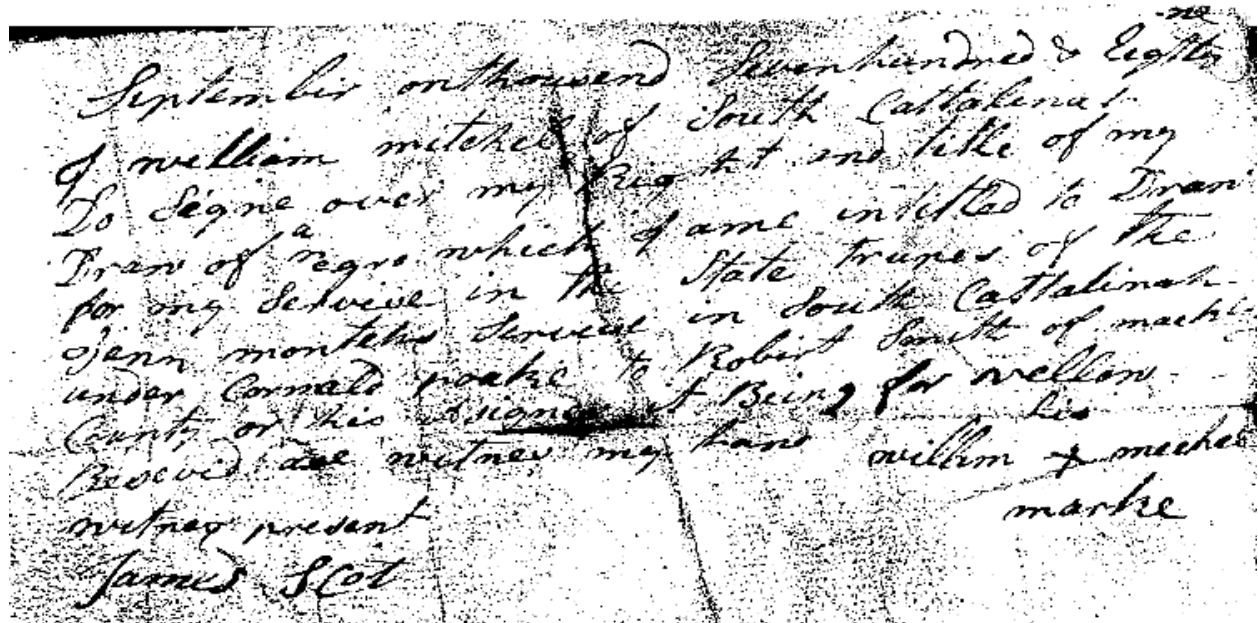 ne
Septembir onthousend Sevenhundred & Eighty
J william mitchel of South Cattalina
Do Seigne over my Right and title of my
Draw of a negro which J ame intitled to Draw
for my Servise in the State trupes of the
months Servise in South Cattalinah
under Cornald poake to Robirt Smith of
County or his Asigne it Being for vellow
Resevid witnes my hand willim his x mechel
marke
witnes present
James Scot